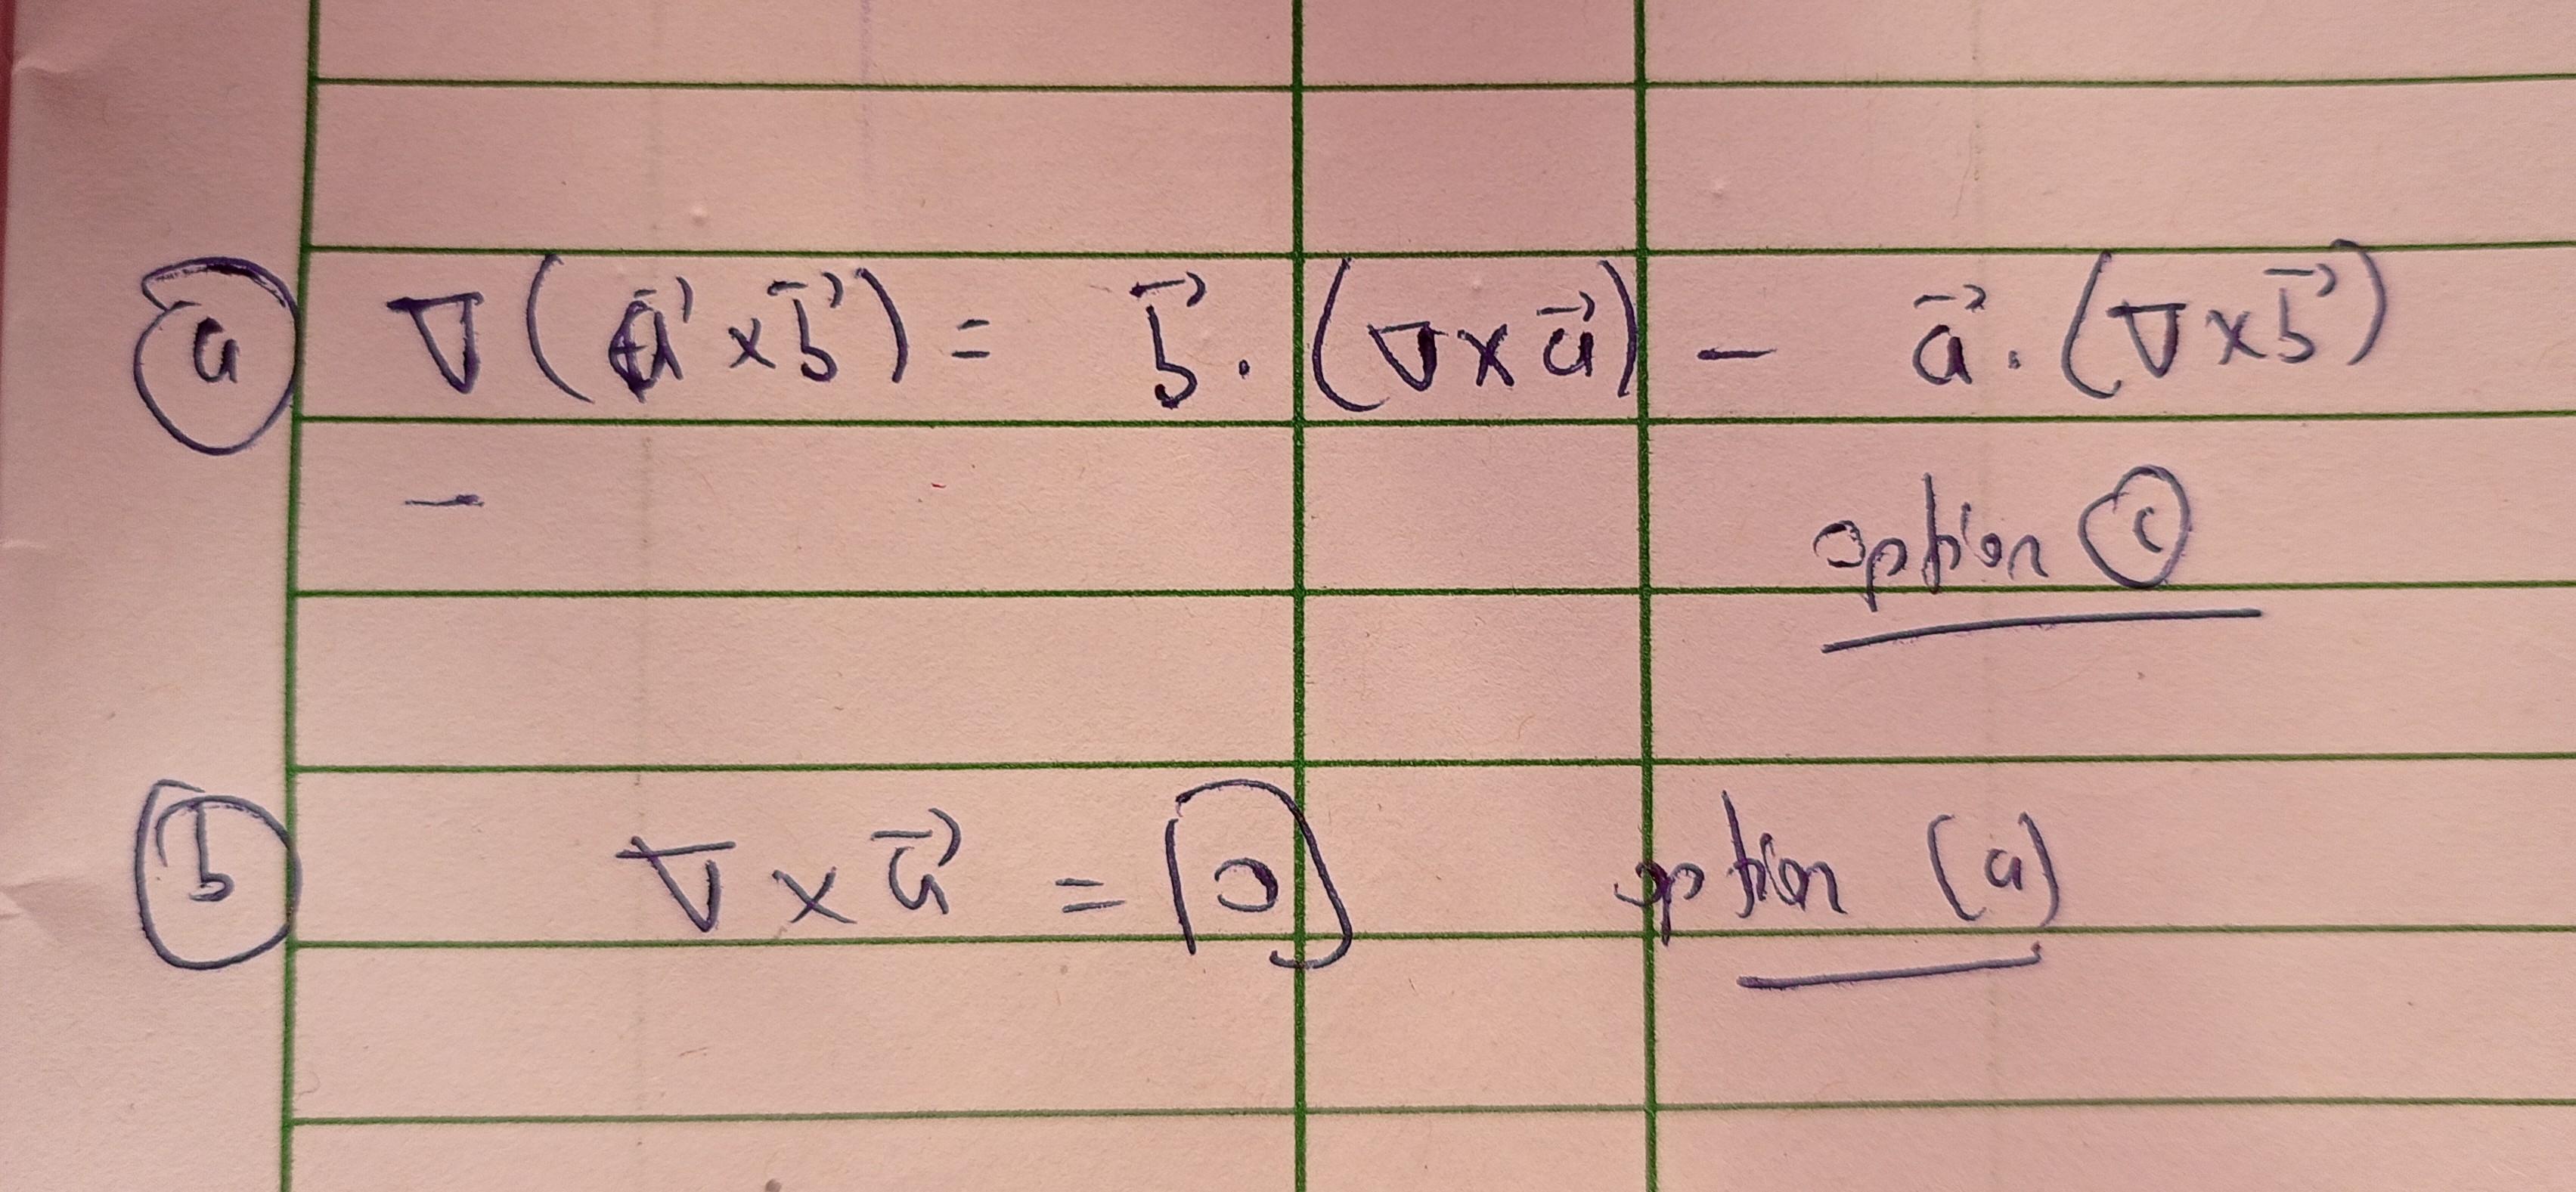 (a) ∇(a⃗ × b⃗) = b⃗ . (∇ × a⃗) − a⃗ . (∇ × b⃗)
—
option (c)
(b) ∇ × a⃗ = 0 option (a)